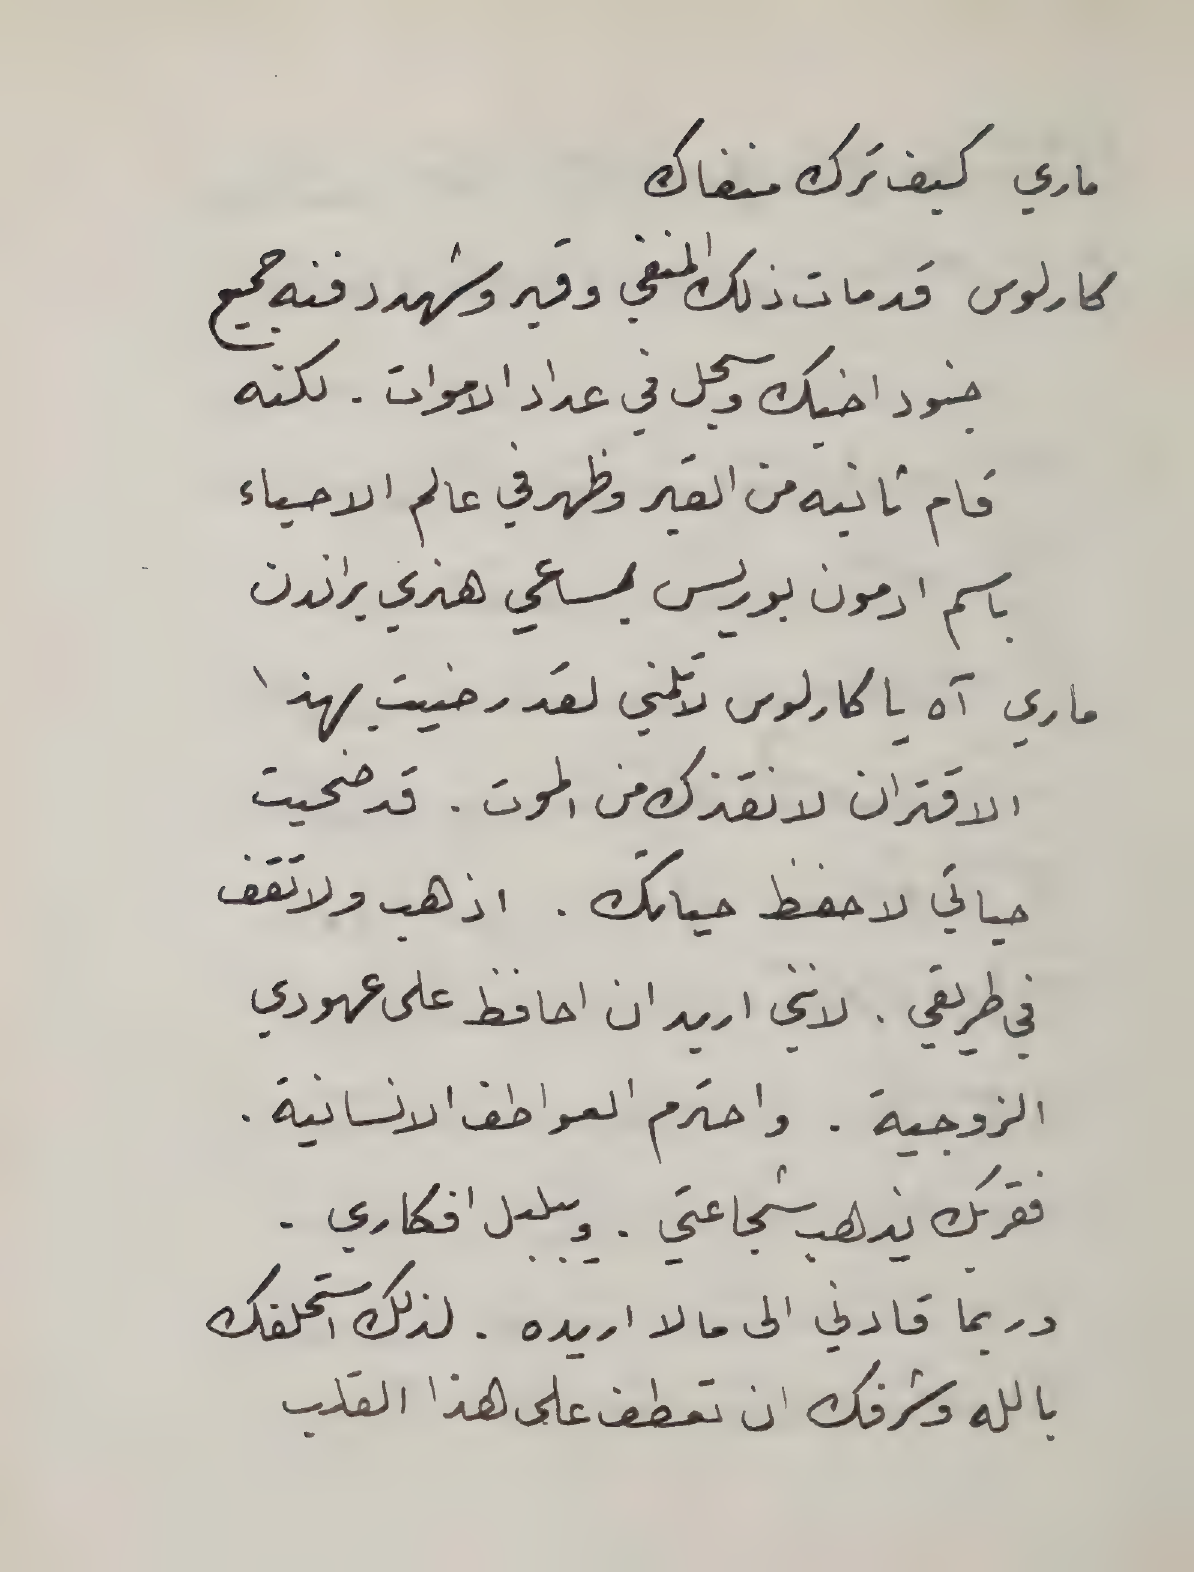 ماري كيف ترك منفاك
كارلوس قد مات ذلك المنفي وقبر وشهد دفنه جميع
جنود اخيك وسجل في عداد الاموات . لكنه
قام ثانيه من القبر وظهر في عالم الاحياء
باسم ادمون بوريس بمساعي هنري براندن
ماري آه يا كارلوس لا تلمني لقد رضيت بهذا
الاقتران لانقذك من الموت . قد ضحيت
حياتي لاحفظ حياتك . اذهب ولا تقف
في طريقي . لانني اريد ان احافظ على عهودي
الزوجية . واحترم العواطف الانسانية .
فقربك يذهب شجاعتي . ويبلبل افكاري .
وربما قادني الى ما لا اريده . لذلك استحلفك
بالله وشرفك ان تعطف على هذا القلب